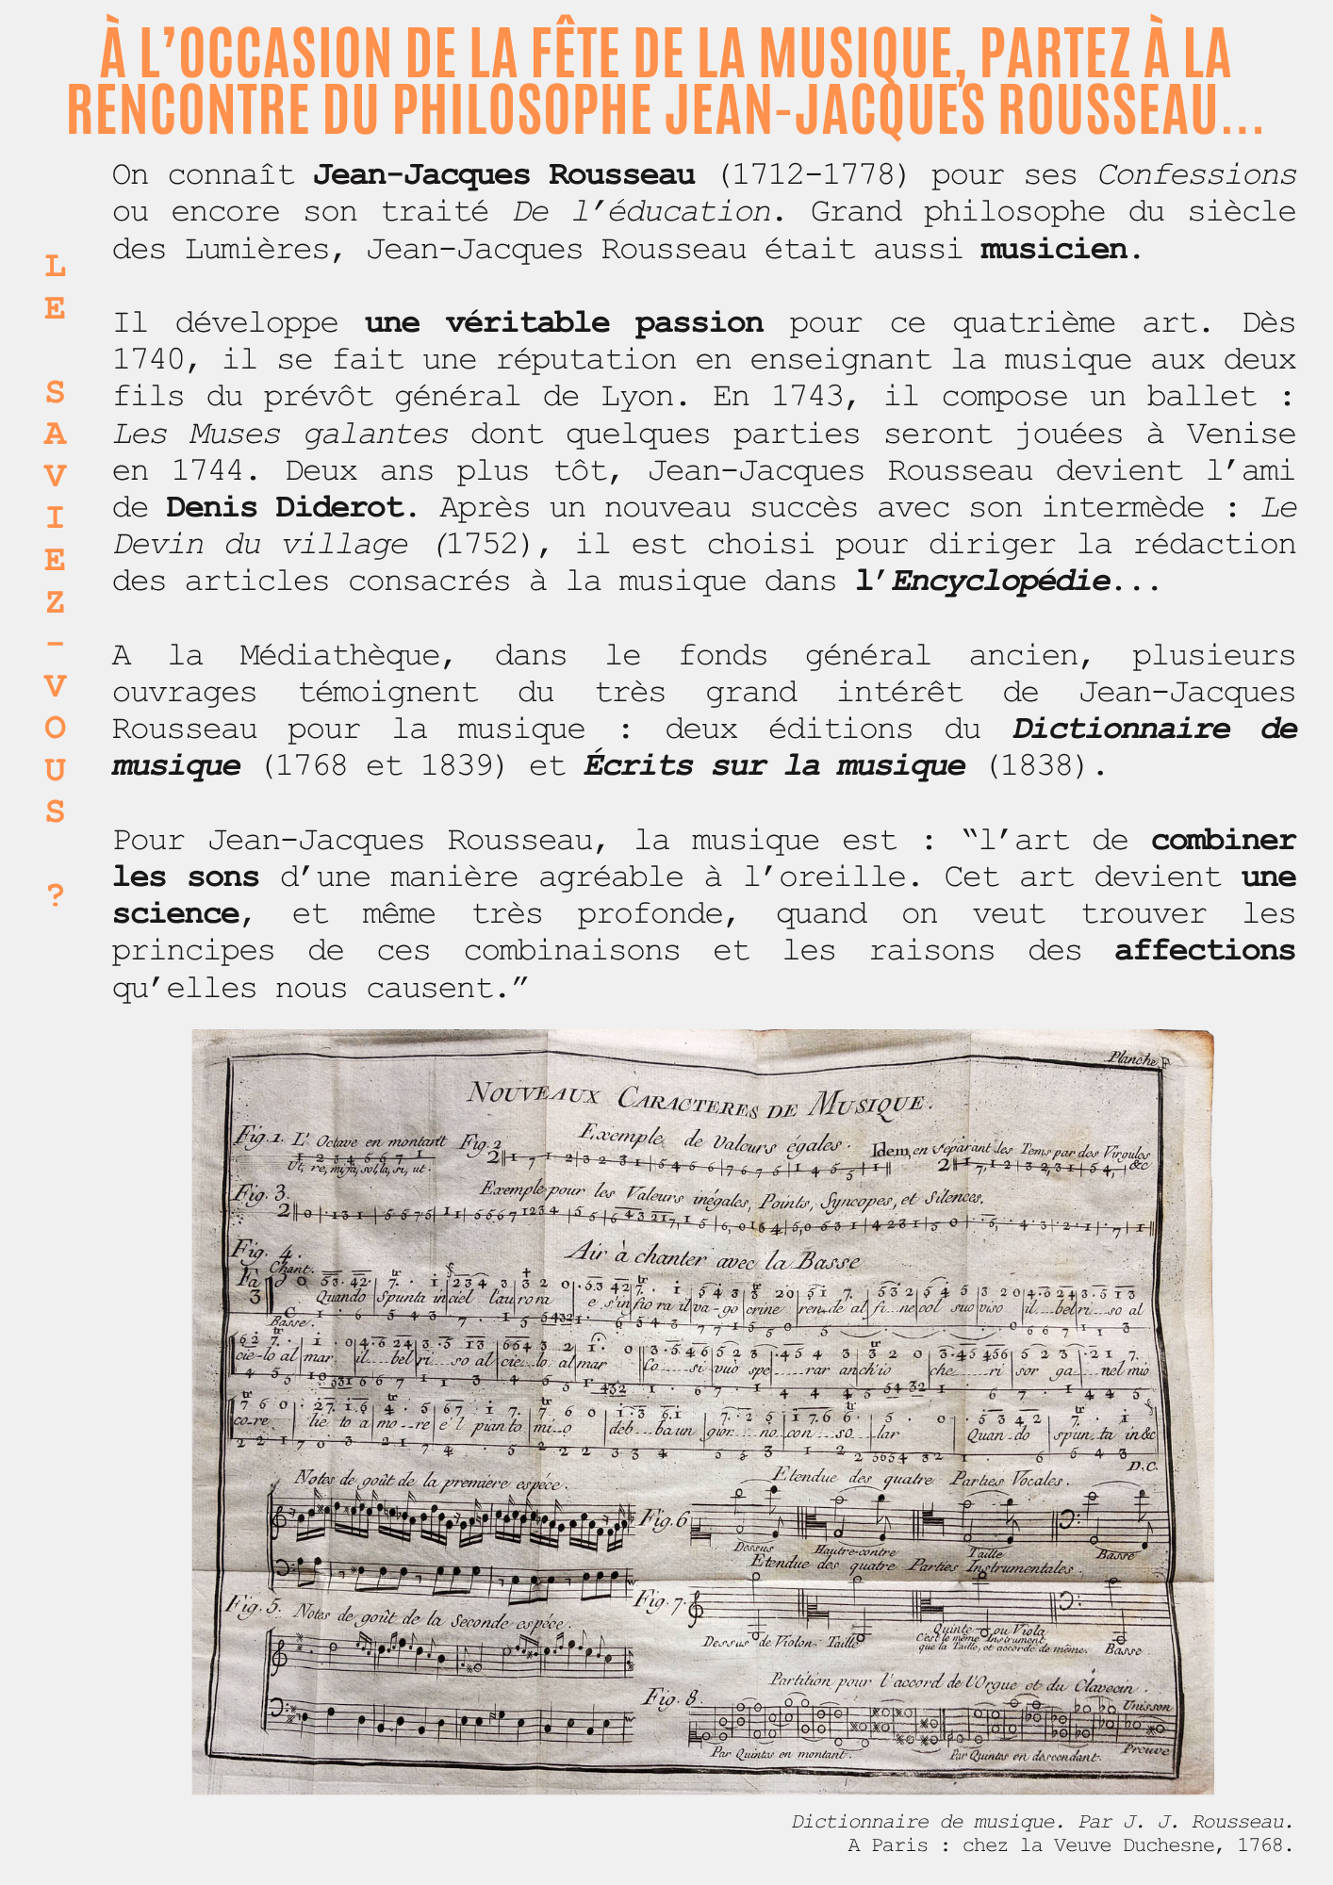 À L’OCCASION DE LA FÊTE DE LA MUSIQUE, PARTEZ À LA
RENCONTRE DU PHILOSOPHE JEAN-JACQUES ROUSSEAU...
LE SAVIEZ-VOUS ?
On connaît Jean-Jacques Rousseau (1712-1778) pour ses Confessions
ou encore son traité De l’éducation. Grand philosophe du siècle
des Lumières, Jean-Jacques Rousseau était aussi musicien.
Il développe une véritable passion pour ce quatrième art. Dès
1740, il se fait une réputation en enseignant la musique aux deux
fils du prévôt général de Lyon. En 1743, il compose un ballet :
Les Muses galantes dont quelques parties seront jouées à Venise
en 1744. Deux ans plus tôt, Jean-Jacques Rousseau devient l’ami
de Denis Diderot. Après un nouveau succès avec son intermède : Le
Devin du village (1752), il est choisi pour diriger la rédaction
des articles consacrés à la musique dans l’Encyclopédie...
A la Médiathèque, dans le fonds général ancien, plusieurs
ouvrages témoignent du très grand intérêt de Jean-Jacques
Rousseau pour la musique : deux éditions du Dictionnaire de
musique (1768 et 1839) et Écrits sur la musique (1838).
Pour Jean-Jacques Rousseau, la musique est : “l’art de combiner
les sons d’une manière agréable à l’oreille. Cet art devient une
science, et même très profonde, quand on veut trouver les
principes de ces combinaisons et les raisons des affections
qu’elles nous causent.”
Planche F
NOUVEAUX CARACTERES DE MUSIQUE.
Fig. 1. L'Octave en montant
Ut, re, mi, fa, sol, la, si, ut.
Fig. 2
Exemple de Valeurs égales.
Idem, en séparant les Tems par des Virgules
&c
Fig. 3.
Exemple pour les Valeurs inégales, Points, Syncopes, et Silences.
Fig. 4.
Air à chanter avec la Basse
Chant.
Quando spunta in ciel l'aurora e s'infiora il va-go crine ren-de al fi-ne col suo viso il bel ri-so al
Basse.
cie-lo al mar il bel ri-so al cie-lo al mar Co-si vuò spe-rar anch'io che ri sor ga nel mio
co-re lie to a mo-re e'l pianto mi-o deb-ba un gior-no con-so-lar Quan-do spun-ta in &c
D.C.
Notes de goût de la premiere espéce.
Etendue des quatre Parties Vocales.
Fig. 6
Dessus Hautre-contre Taille Basse
Etendue des quatre Parties Instrumentales.
Fig. 7.
Dessus de Violon Taille Quinte ou Viola Basse
C'est le même Instrument
que la Taille, et accordé de même.
Fig. 5. Notes de goût de la Seconde espéce.
Partition pour l'accord de l'Orgue et du Clavecin.
Fig. 8.
Unisson
Preuve
Par Quintes en montant.
Par Quintes en descendant.
Dictionnaire de musique. Par J. J. Rousseau.
A Paris : chez la Veuve Duchesne, 1768.